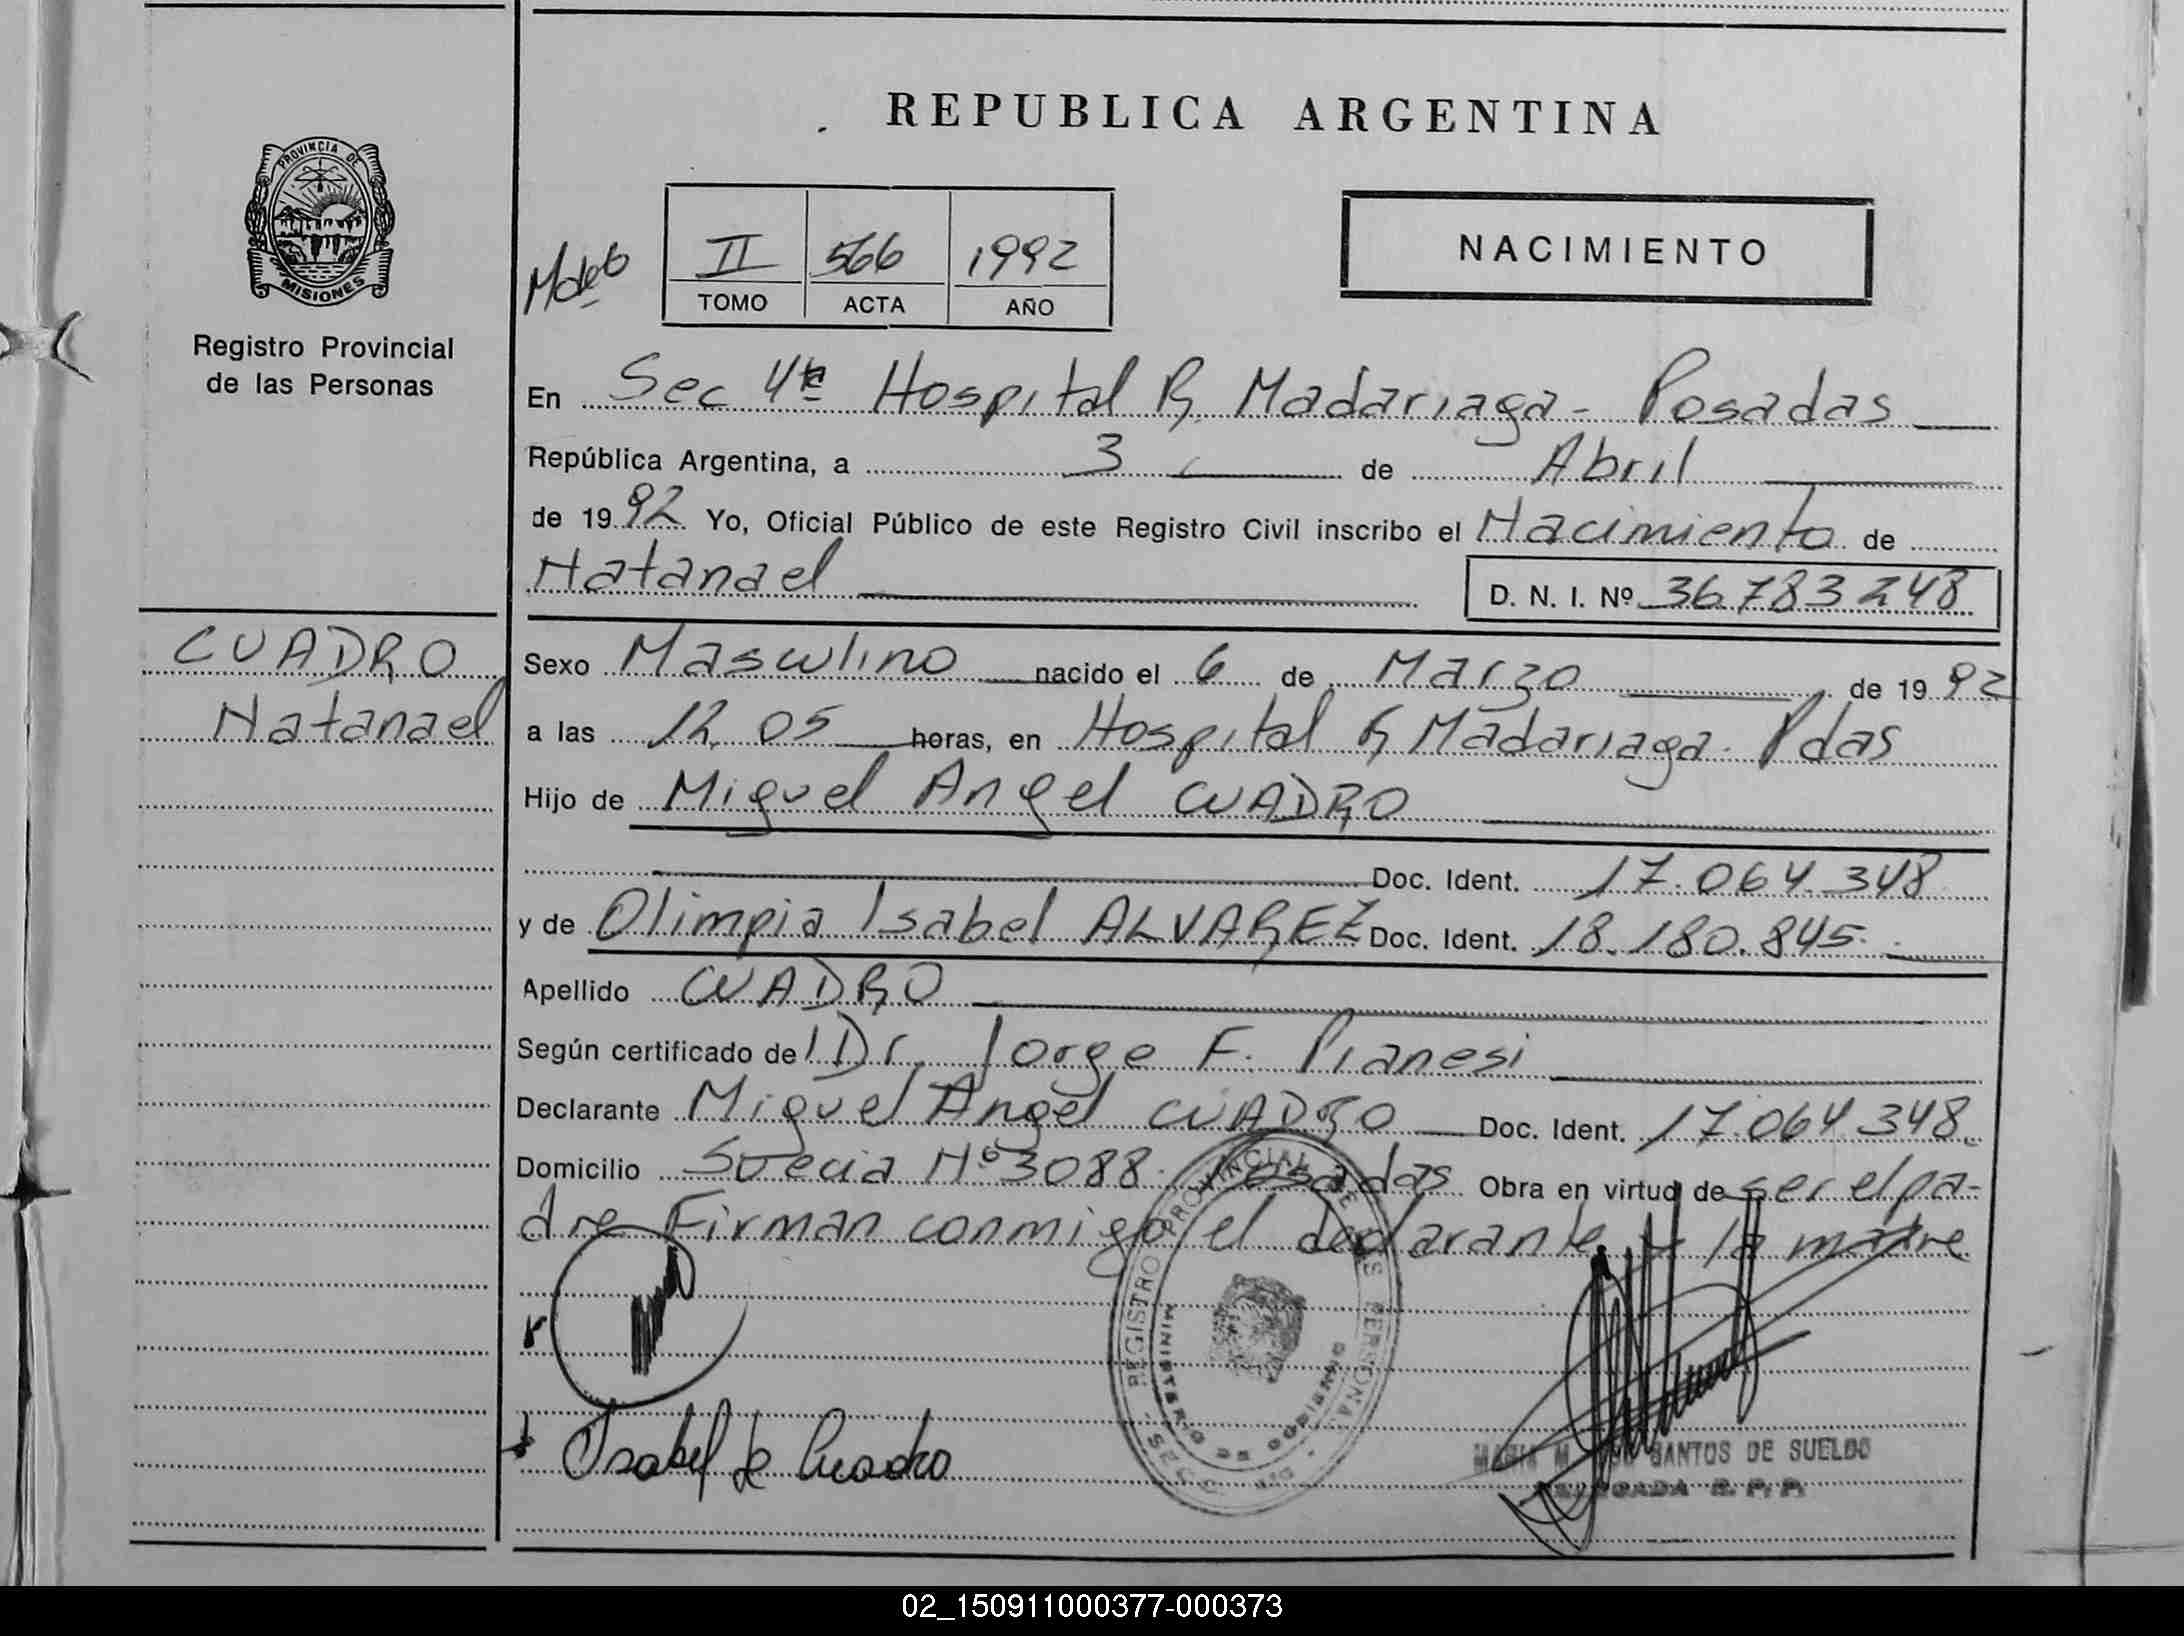 REPUBLICA ARGENTINA
PROVINCIA DE
MISIONES
Registro Provincial
de las Personas
II 566 1992
TOMO ACTA AÑO
NACIMIENTO
En Sec 4ta Hospital R. Madariaga - Posadas
República Argentina, a 3 de Abril
de 1992 Yo, Oficial Público de este Registro Civil inscribo el Nacimiento de
Natanael D. N. I. Nº 36.783.248
CUADRO
Natanael
Sexo Masculino nacido el 6 de Marzo de 1992
a las 12.05 horas, en Hospital R Madariaga - Pdas
Hijo de Miguel Angel CUADRO
Doc. Ident. 17.064.348
y de Olimpia Isabel ALVAREZ Doc. Ident. 18.180.845
Apellido CUADRO
Según certificado del Dr. Jorge F. Pianesi
Declarante Miguel Angel CUADRO Doc. Ident. 17.064.348
Domicilio Suecia Nº 3088. Posadas Obra en virtud de ser el pa-
dre Firman conmigo el declarante y la madre
REGISTRO PROVINCIAL DE LAS PERSONAS
MINISTERIO DE GOBIERNO
Isabel de Cuadro
MARIA M. SANTOS DE SUELDO
DELEGADA R. P. P.
02_150911000377-000373